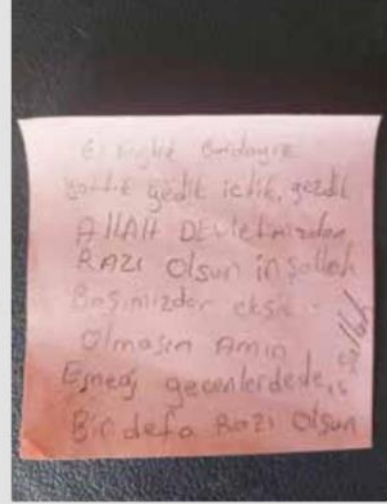 6 kişilik
yattık yedik içtik, gezdik
AllAH DEVletimizden
RAZI Olsun inşallah
Başımızdan eksik
Olmasın Amin
Emeği geçenlerdede,
Bir defa Razı Olsun